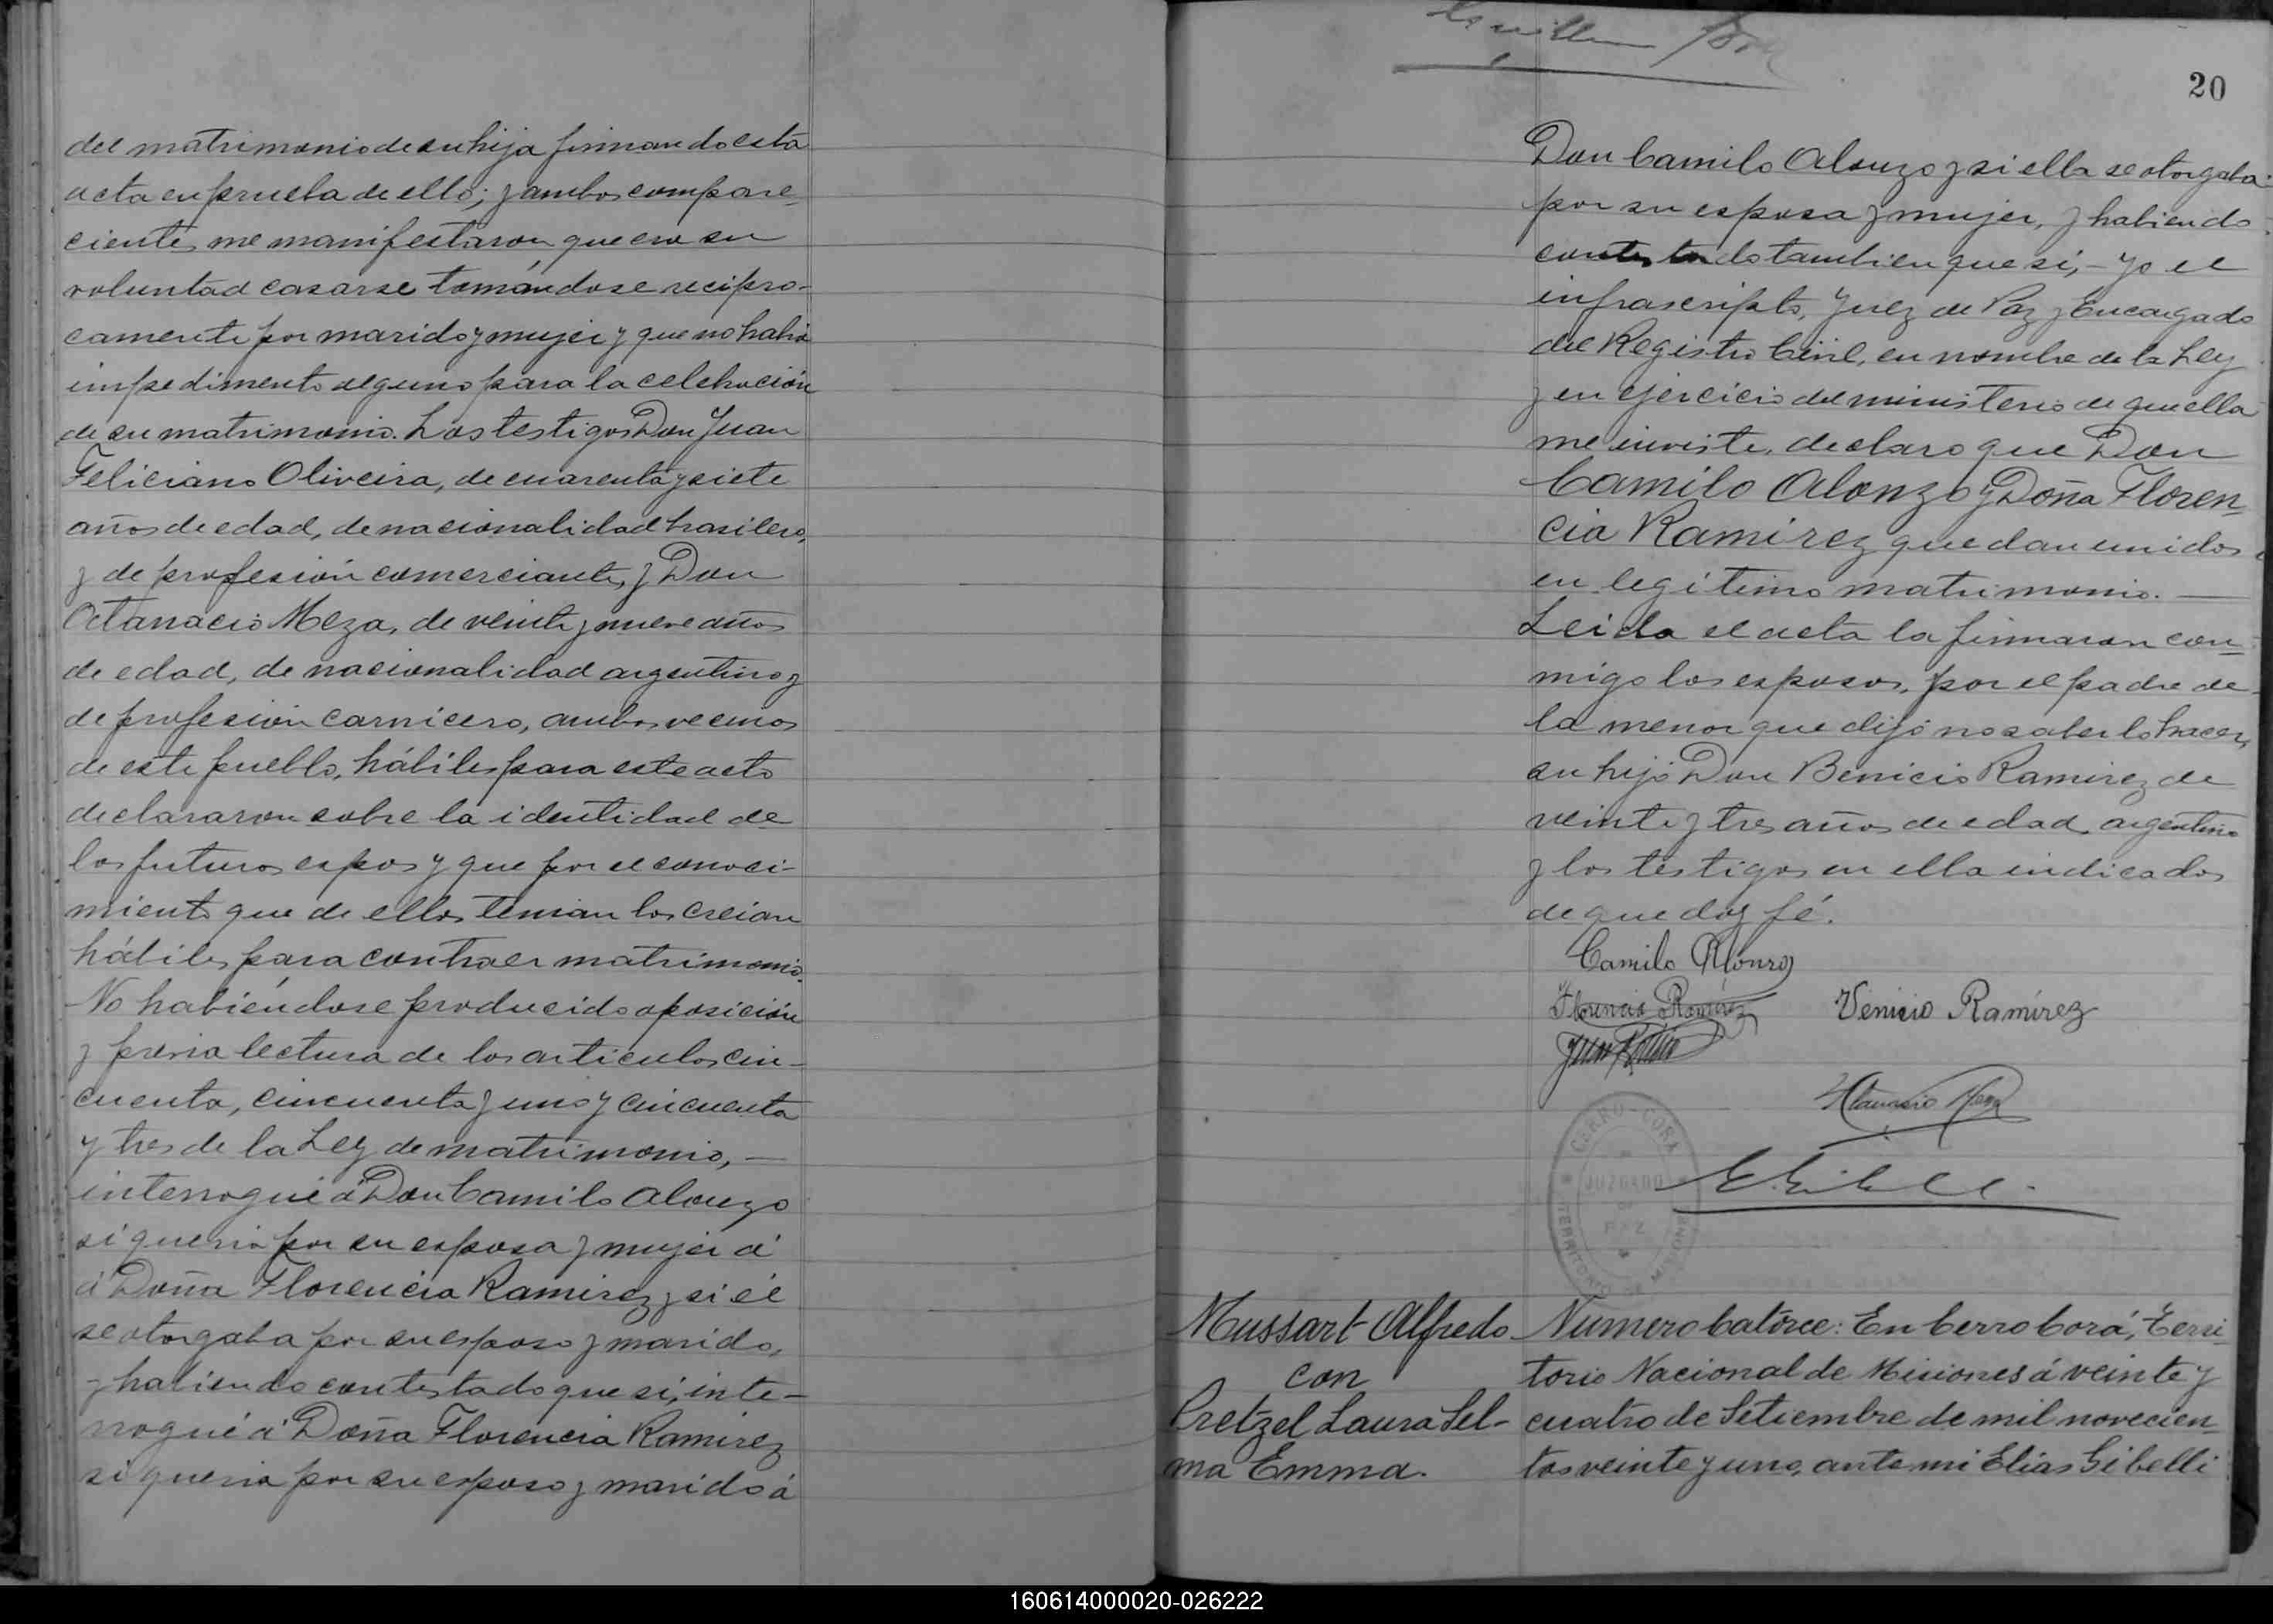 del matrimonio de su hija firmando esta
acta en prueba de ello; y ambos compare-
cientes me manifestaron que era su
voluntad casarse tomándose recipro-
camente por marido y mujer y que no habia
impedimento alguno para la celebración
de su matrimonio. Los testigos Don Juan
Feliciano Oliveira, de cuarenta y siete
años de edad, de nacionalidad brasilero,
y de profesión comerciante, y Don
Atanacio Meza, de veinte y nueve años
de edad, de nacionalidad argentino y
de profesión carnicero, ambos vecinos
de este pueblo, hábiles para este acto
declararon sobre la identidad de
los futuros espos y que por el conoci-
miento que de ellos tenian los creian
hábiles para contraer matrimonio.
No habiéndose producido oposición
y previa lectura de los articulos cin-
cuenta, cincuenta y uno y cincuenta
y tres de la Ley de matrimonio, —
interrogué á Don Camilo Alonzo
si queria por su esposa y mujer á
á Doña Florencia Ramirez y si él
se otorgaba por su esposo y marido,
y habiendo contestado que si, inte-
rrogué á Doña Florencia Ramirez
si queria por su esposo y marido á
20
Don Camilo Alonzo y si ella se otorgaba
por su esposa y mujer, y habiendo
contestado tambien que si, - yo el
infrascripto, Juez de Paz y Encargado
del Registro Civil, en nombre de la Ley
y en ejercicio del ministerio de que ella
me inviste, declaro que Don
Camilo Alonzo y Doña Floren-
cia Ramirez quedan unidos
en legítimo matrimonio. —
Leida el acta la firmaron con-
migo los esposos, por el padre de
la menor que dijo no saberlo hacer,
su hijo Don Benicio Ramirez de
veinte y tres años de edad, argentino
y los testigos en ella indicados
de que doy fé.
Camilo Alonzo
Florencia Ramirez Venicio Ramírez
Atanacio Meza
CERRO-CORA
JUZGADO
DE
PAZ
TERRITORIO DE MISIONES
Mussart Alfredo
con
Pretzel Laura Sel-
ma Emma.
Numero Catorce: En Cerro Corá, Terri-
torio Nacional de Misiones á veinte y
cuatro de Setiembre de mil novecien-
tos veinte y uno, ante mi Elias Gibelli
160614000020-026222